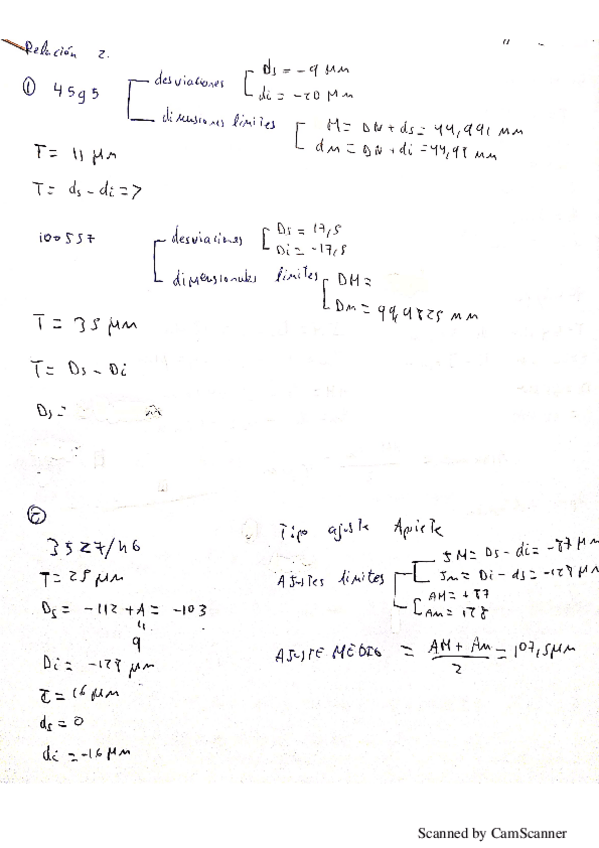 Relación 2.
① 45g5
desviaciones
ds = -9 μm
di = -20 μm
dimensiones límites
M = DN + ds = 44,991 mm
dm = DN + di = 44,98 mm
T = 11 μm
T = ds - di = 7
100js7
desviaciones
Ds = 17,5
Di = -17,5
dimensionales límites
DM =
Dm = 99,9825 mm
T = 35 μm
T = Ds - Di
Ds =
35Z7/h6
T = 25 μm
Ds = -112 + Δ = -103
9
Di = -128 μm
τ = 16 μm
ds = 0
di = -16 μm
Tipo ajuste Apriete
Ajustes límites
JM = Ds - di = -87 μm
Jm = Di - ds = -128 μm
AM = +87
Am = 128
AJUSTE MEDIO = AM + Am / 2 = 107,5 μm
Scanned by CamScanner